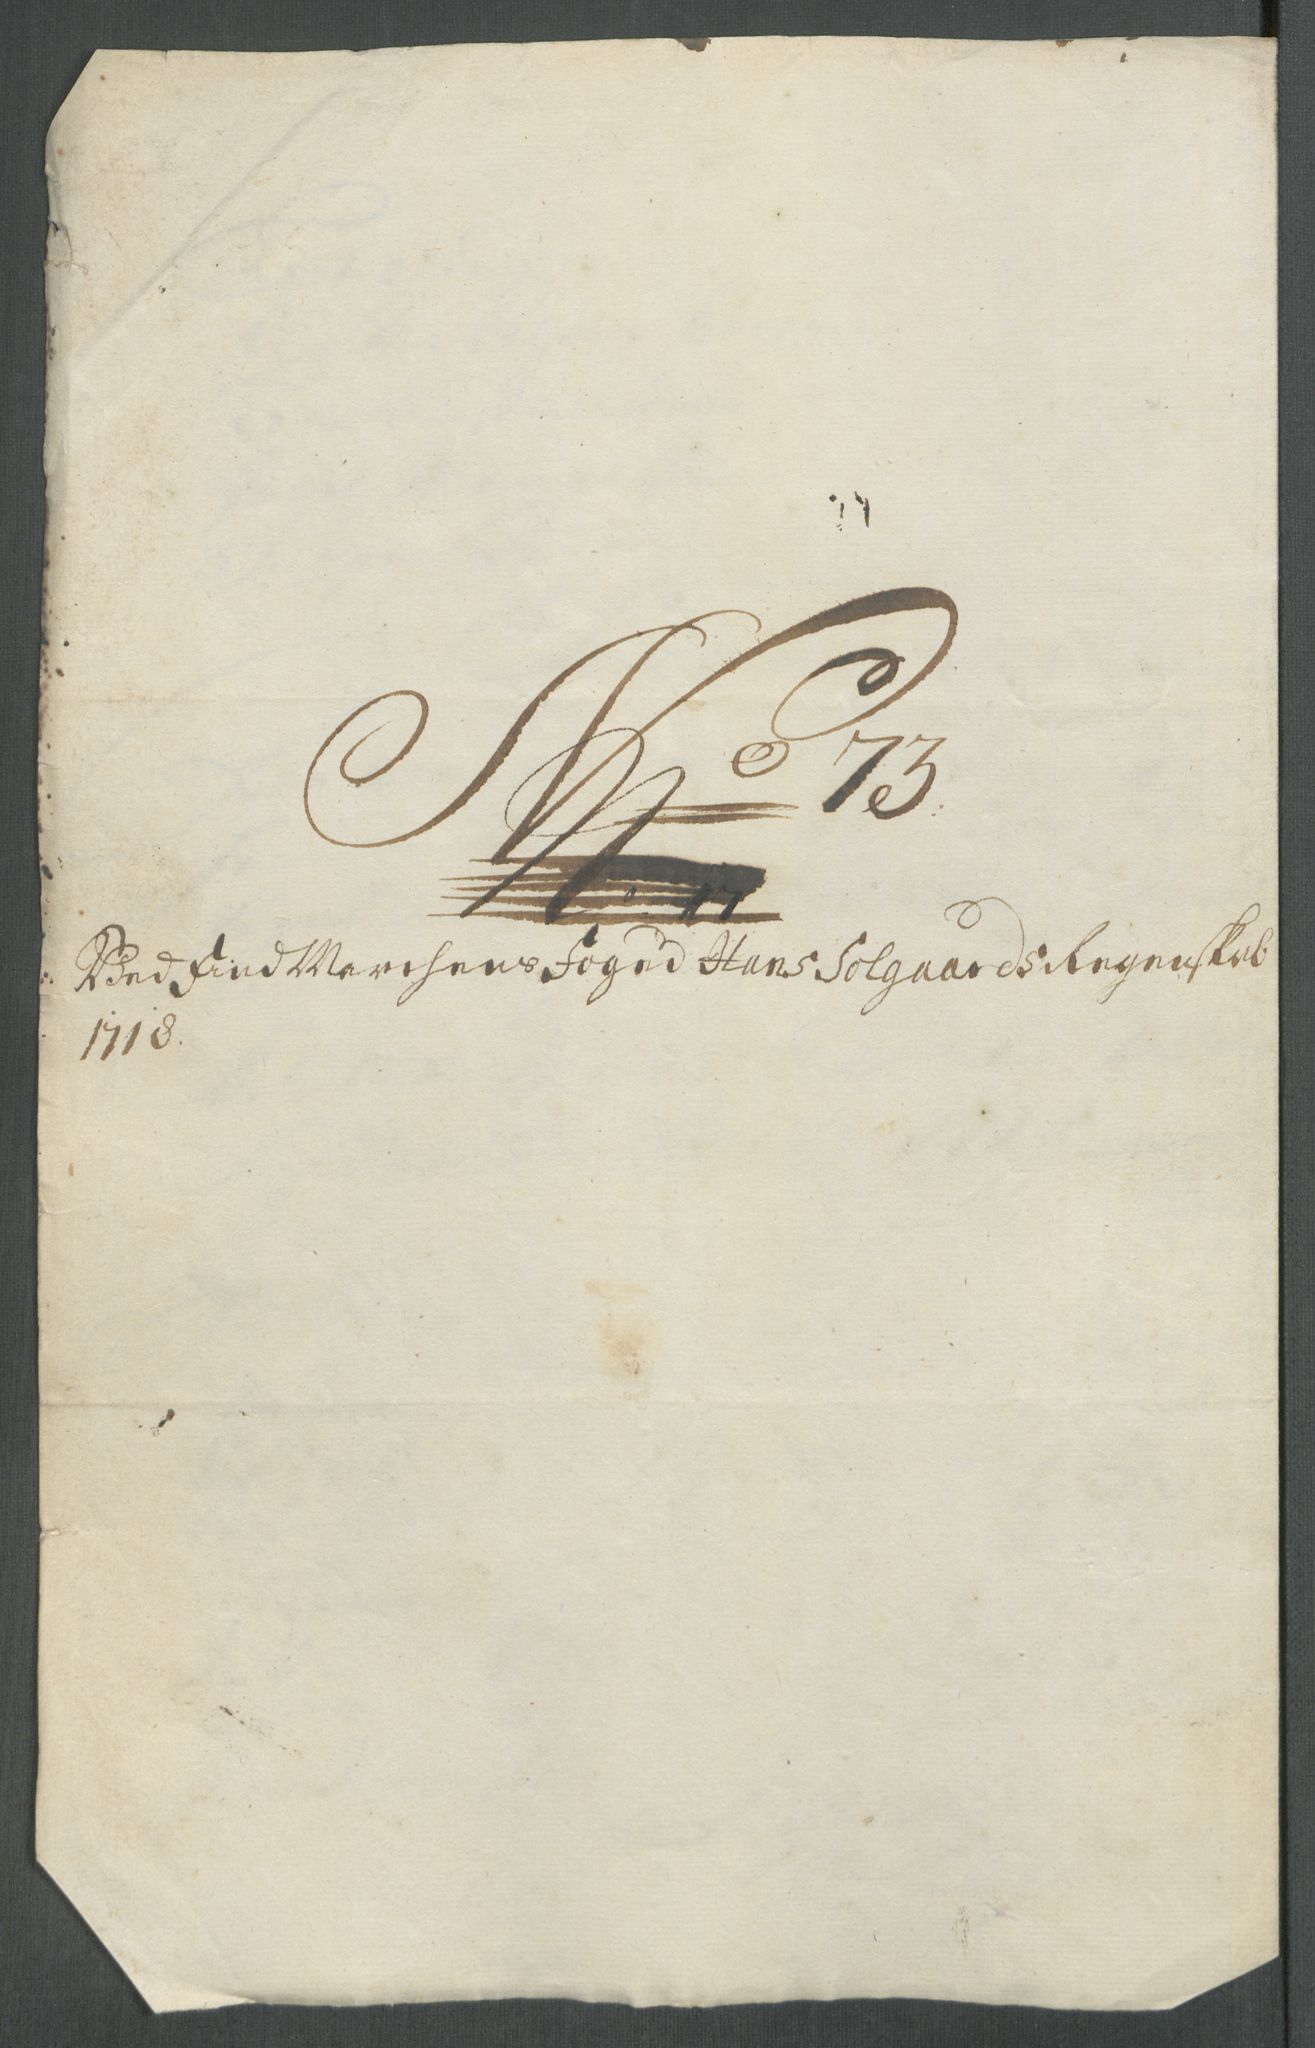 No 73.
Ved Find Marchens Foged Hans Solgaards Regenskab
1718.